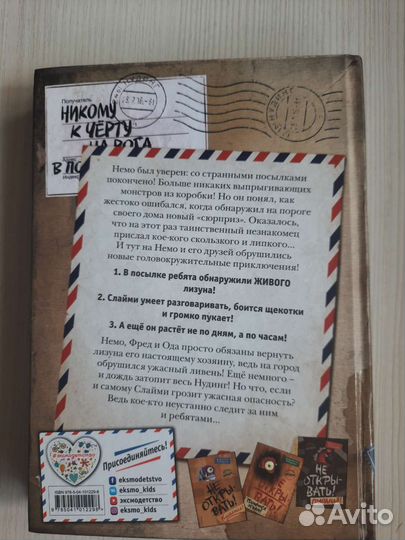 Получатель
НИКОМУ
К ЧЁРТУ
НА РОГА
В ПО
Индекс
Немо был уверен: со странными посылками
покончено! Больше никаких выпрыгивающих
монстров из коробки! Но он понял, как
жестоко ошибался, когда обнаружил на пороге
своего дома новый «сюрприз». Оказалось,
что на этот раз таинственный незнакомец
прислал кое-кого скользкого и липкого...
И тут на Немо и его друзей обрушились
новые головокружительные приключения!
1. В посылке ребята обнаружили ЖИВОГО
лизуна!
2. Слайми умеет разговаривать, боится щекотки
и громко пукает!
3. А ещё он растёт не по дням, а по часам!
Немо, Фред и Ода просто обязаны вернуть
лизуна его настоящему хозяину, ведь на город
обрушился ужасный ливень! Ещё немного –
и дождь затопит весь Нудинг! Но что, если
и самому Слайми грозит ужасная опасность?
Ведь кое-кто неустанно следит за ним
и ребятами...
Присоединяйтесь!
eksmodetstvo
eksmo_kids
эксмодетство
eksmo_kids
ISBN 978-5-04-101229-8
9 785041 012298
НЕ
ОТКРЫ-
ВАТЬ!
НЕ
ОТКРЫ-
ВАТЬ!
НЕ
ОТКРЫ-
ВАТЬ!
Avito